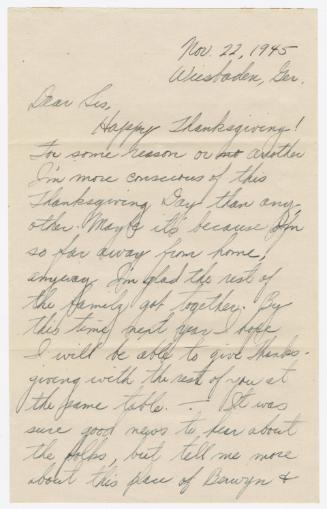 Nov. 22, 1945
Wiesbaden, Ger.
Dear Sis,
Happy Thanksgiving!
For some reason or no another
I'm more conscious of this
Thanksgiving Day than any-
other. Maybe it's because I'm
so far away from home,
anyway I'm glad the rest of
the family got together. By
this time next year I hope
I will be able to give thanks-
giving with the rest of you at
the same table. — It was
sure good news to hear about
the folks, but tell me more
about this place of Berwyn &